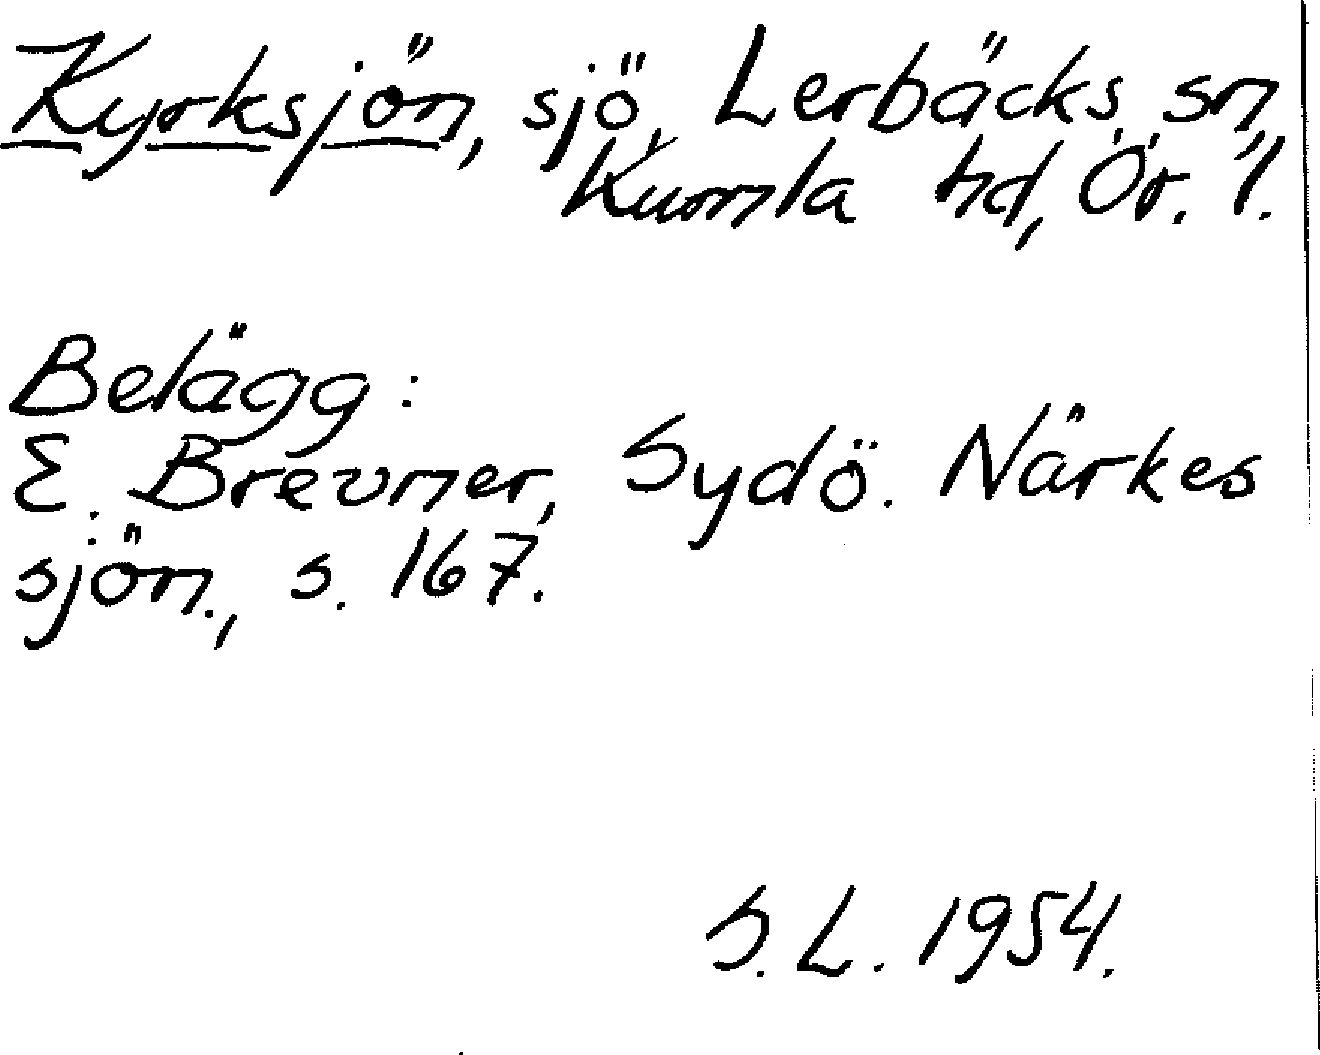 Kyrksjön, sjö, Lerbäcks sn,
Kumla hd, Ör. l.
Belägg:
E. Brevner, Sydö. Närkes
sjön., s. 167.
S. L. 1954.